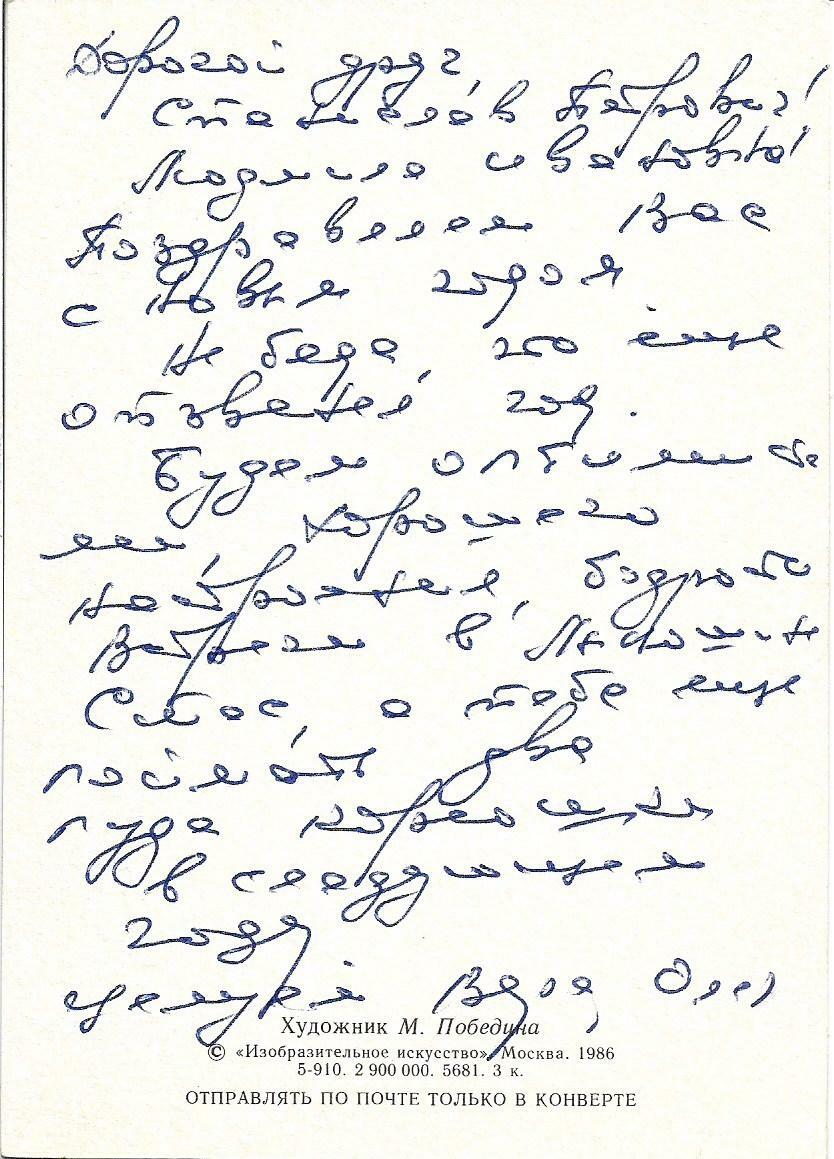 Дорогой друг,
Станислав Петрович!
Людмила Ивановна!
Поздравляем Вас
с Новым годом
Не беда, что ещё
отзвенел год.
Будем оптимиста
ми, хорошего
настроения, бодрости
Встречи в
а тебе ещё
поймать два
пуда
в следующем
году
целуем Валя,
Художник М. Победина
© «Изобразительное искусство». Москва. 1986
5-910. 2 900 000. 5681. 3 к.
ОТПРАВЛЯТЬ ПО ПОЧТЕ ТОЛЬКО В КОНВЕРТЕ